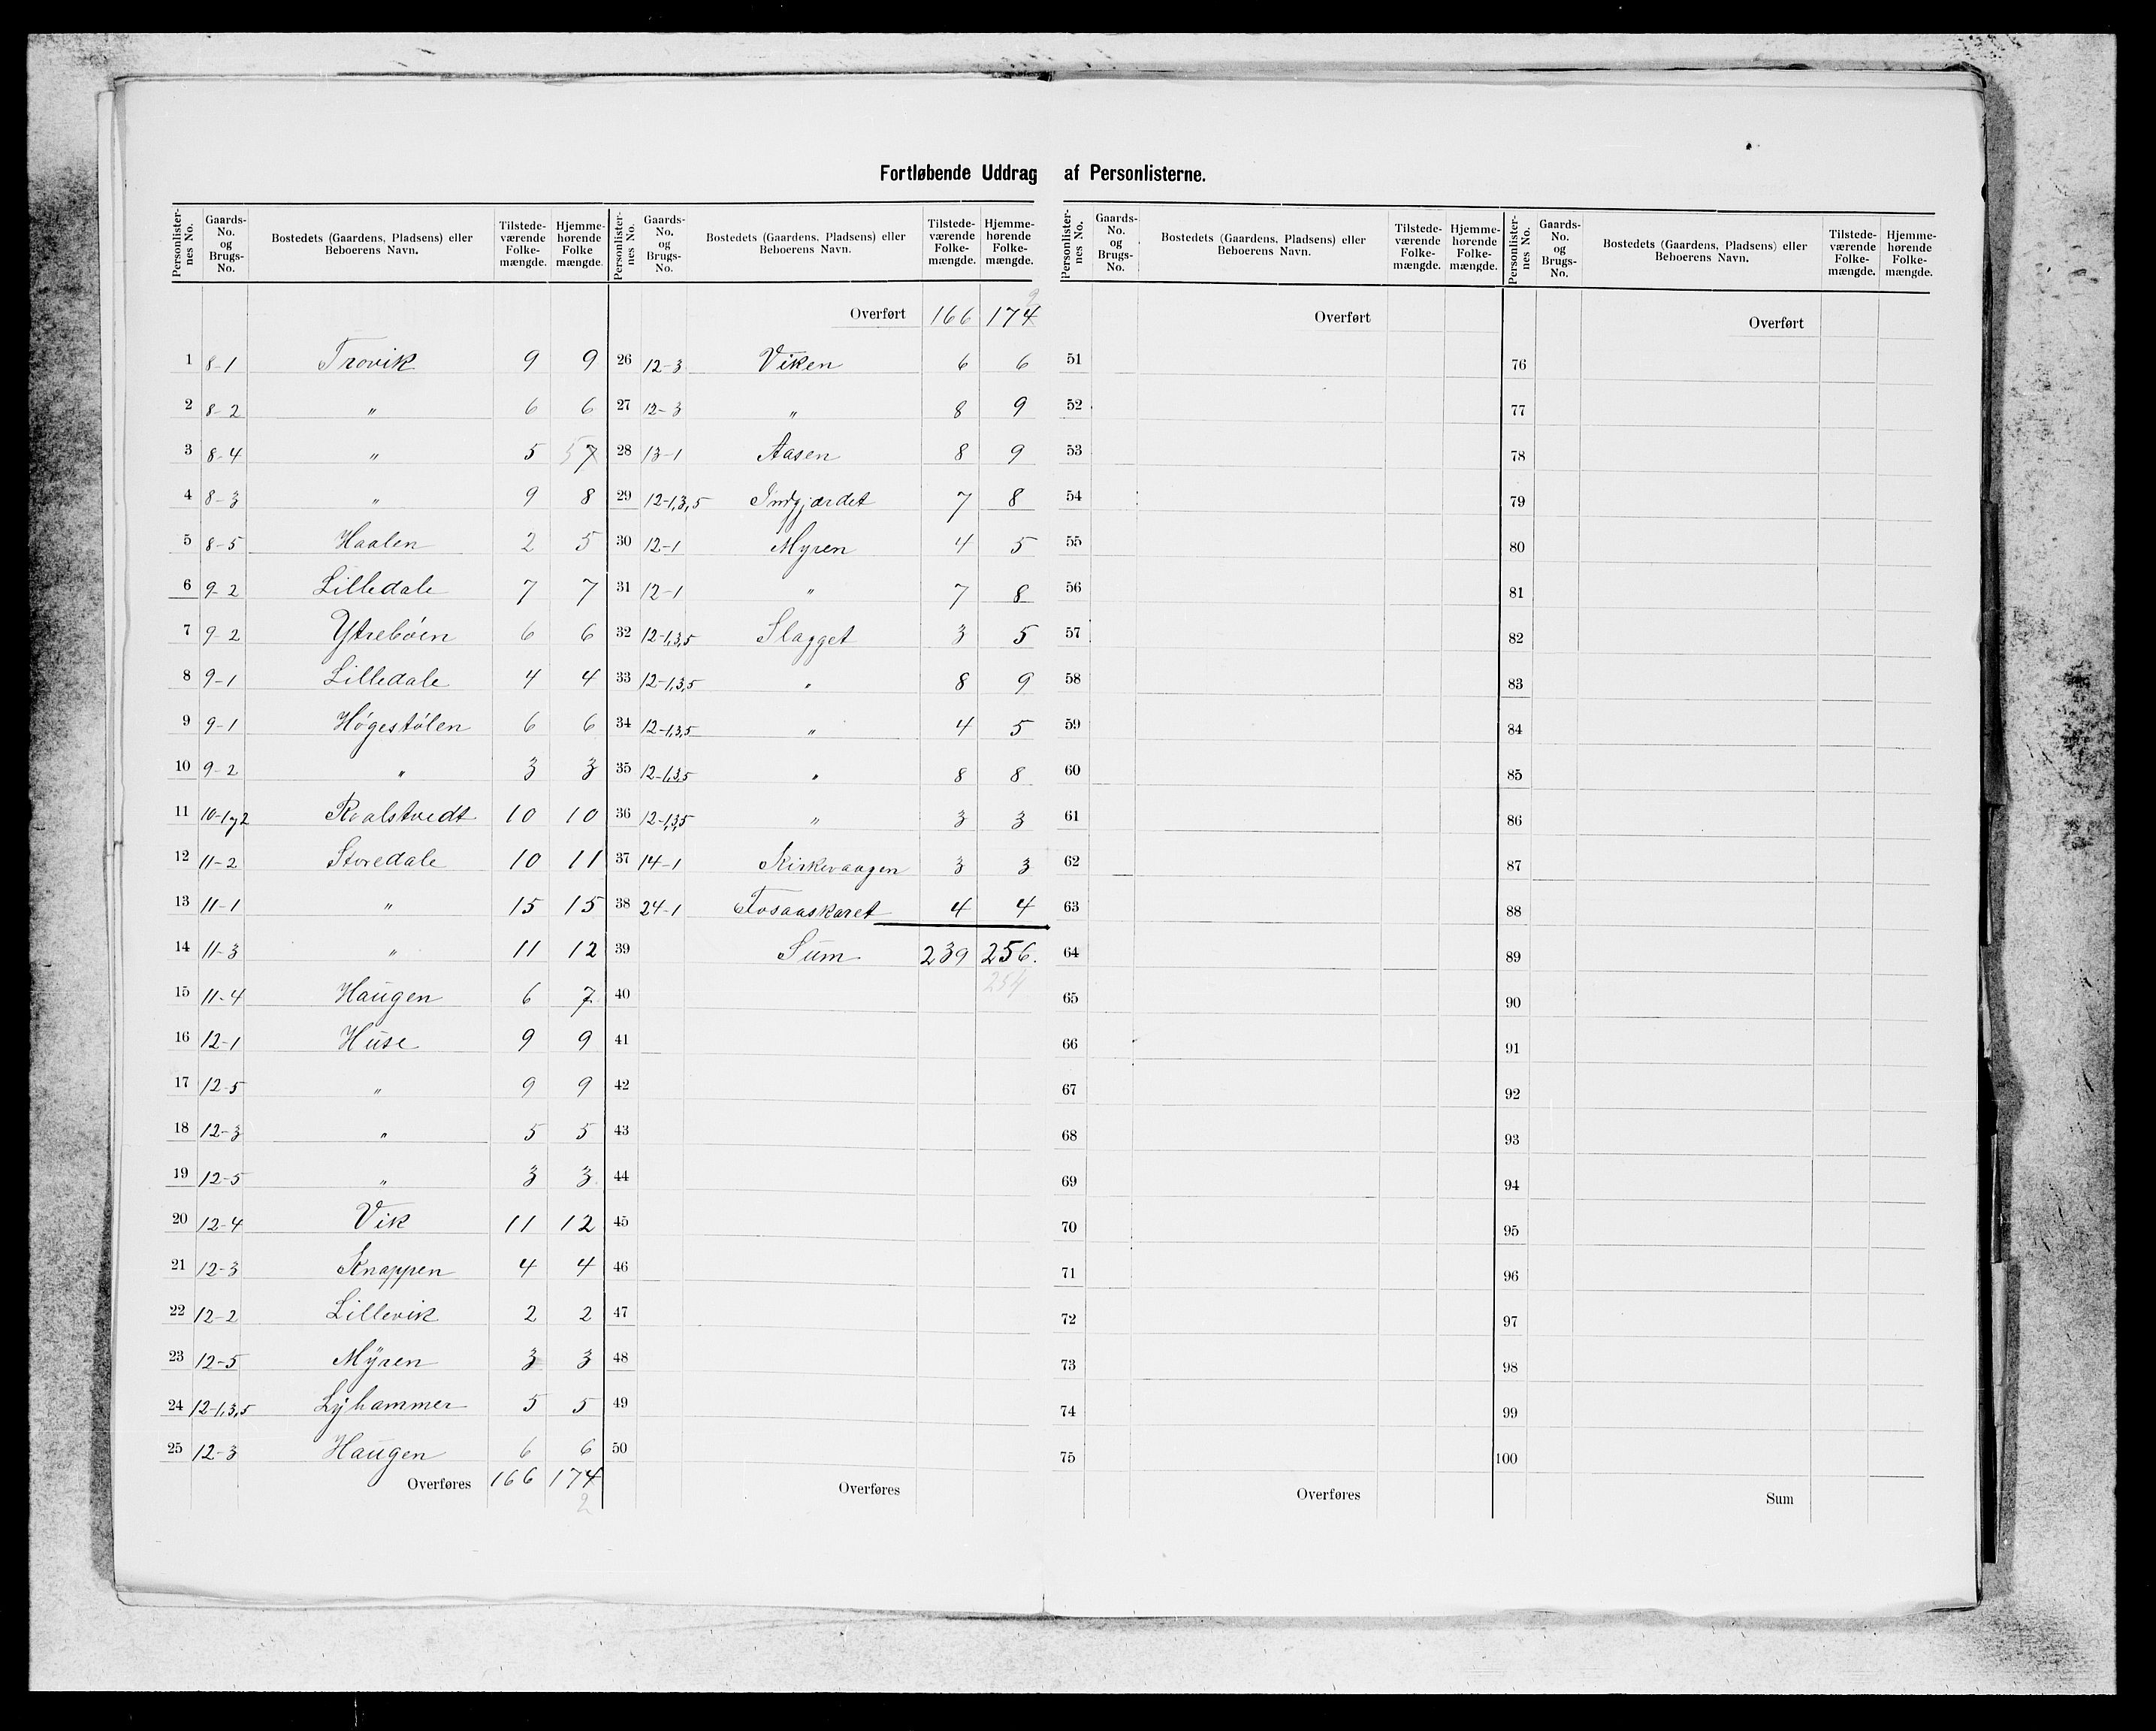 Fortløbende Uddrag af Personlisterne.
Personlister-nes No. Gaards-No. og Brugs-No. Bostedets (Gaardens, Pladsens) eller Beboerens Navn. Tilstede-værende Folke-mængde. Hjemme-hørende Folke mængde.
1 8-1 Trovik 9 9
2 8-2 " 6 6
3 8-4 " 5 5 7
4 8-3 " 9 8
5 8-5 Haalen 2 5
6 9-2 Lilledale 7 7
7 9-2 Ytrebøen 6 6
8 9-1 Lilledale 4 4
9 9-1 Høgestølen 6 6
10 9-2 " 3 3
11 10-1 2 Roalstvedt 10 10
12 11-2 Storedale 10 11
13 11-1 " 15 15
14 11-3 " 11 12
15 11-4 Haugen 6 7
16 12-1 Huse 9 9
17 12-5 " 9 9
18 12-3 " 5 5
19 12-5 " 3 3
20 12-4 Vik 11 12
21 12-3 Knappen 4 4
22 12-2 Lillevik 2 2
23 12-5 Myren 3 3
24 12-1,3,5 Lyhammer 5 5
25 12-3 Haugen 6 6
Overføres 166 174
2
Personlister-nes No. Gaards-No. og Brugs-No. Bostedets (Gaardens, Pladsens) eller Beboerens Navn. Tilstede-værende Folke-mængde. Hjemme-hørende Folke-mængde.
2
Overført 166 174
26 12-3 Viken 6 6
27 12-3 " 8 9
28 13-1 Aasen 8 9
29 12-1,3,5 Indgjærdet 7 8
30 12-1 Myren 4 5
31 12-1 " 7 8
32 12-1,3,5 Slagget 3 5
33 12-1,3,5 " 8 9
34 12-1,3,5 " 4 5
35 12-1,3,5 " 8 8
36 12-1,3,5 " 3 3
37 14-1 Kirkevaagen 3 3
38 24-1 Fosaaskaret 4 4
39 Sum 239 256.
254
40
41
42
43
44
45
46
47
48
49
50
Overføres
Personlister-nes No. Gaards-No. og Brugs-No. Bostedets (Gaardens, Pladsens) eller Beboerens Navn. Tilstede-værende Folke-mængde. Hjemme-hørende Folke-mængde.
Overført
51
52
53
54
55
56
57
58
59
60
61
62
63
64
65
66
67
68
69
70
71
72
73
74
75
Overføres
Personlister-nes No. Gaards-No. og Brugs-No. Bostedets (Gaardens, Pladsens) eller Beboerens Navn. Tilstede-værende Folke-mængde. Hjemme-hørende Folke-mængde.
Overført
76
77
78
79
80
81
82
83
84
85
86
87
88
89
90
91
92
93
94
95
96
97
98
99
100
Sum